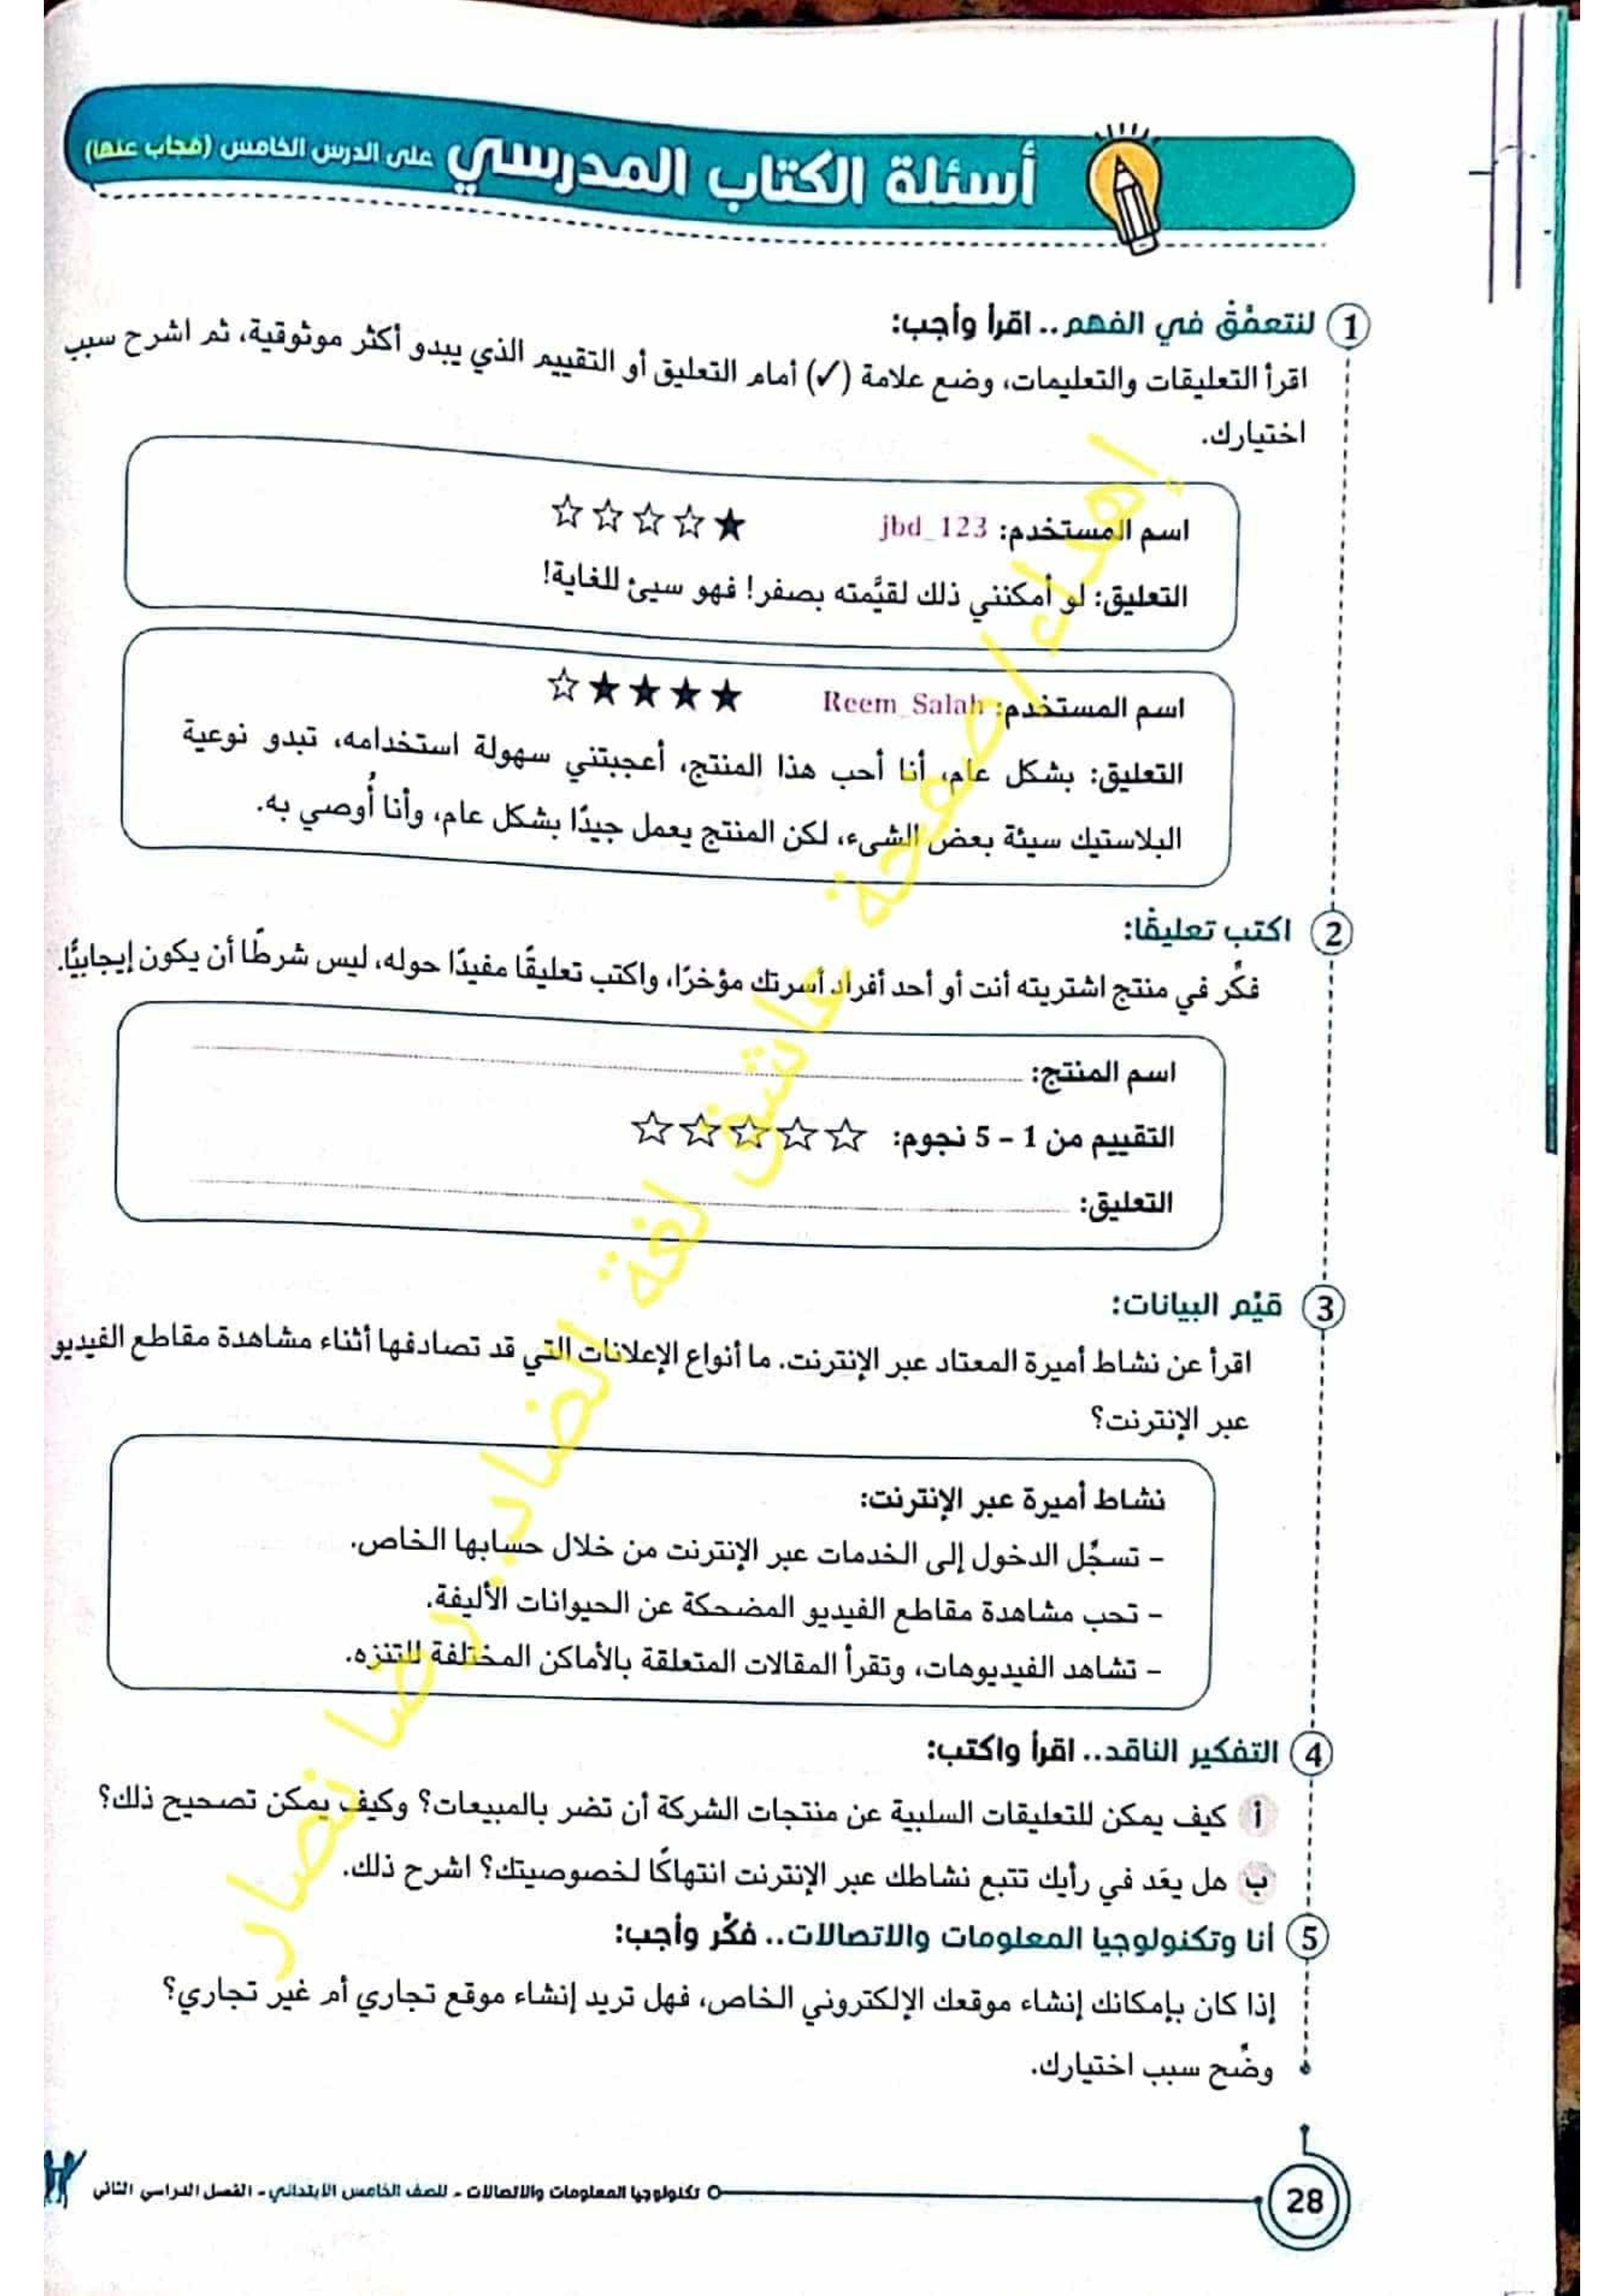 أسئلة الكتاب المدرسي على الدرس الخامس (مجاب عنها)
1 لنتعمَّقْ في الفهم.. اقرأ وأجب:
اقرأ التعليقات والتعليمات، وضع علامة (✓) أمام التعليق أو التقييم الذي يبدو أكثر موثوقية، ثم اشرح سبب
اختيارك.
اسم المستخدم: jbd_123 ★☆☆☆☆
التعليق: لو أمكنني ذلك لقيَّمته بصفر! فهو سيئ للغاية!
اسم المستخدم: Reem_Salah ★★★★☆
التعليق: بشكل عام، أنا أحب هذا المنتج، أعجبتني سهولة استخدامه، تبدو نوعية
البلاستيك سيئة بعض الشىء، لكن المنتج يعمل جيدًا بشكل عام، وأنا أُوصي به.
2 اكتب تعليقًا:
فكِّر في منتج اشتريته أنت أو أحد أفراد أسرتك مؤخرًا، واكتب تعليقًا مفيدًا حوله، ليس شرطًا أن يكون إيجابيًّا.
اسم المنتج:
التقييم من 1 - 5 نجوم: ☆☆☆☆☆
التعليق:
3 قيِّم البيانات:
اقرأ عن نشاط أميرة المعتاد عبر الإنترنت. ما أنواع الإعلانات التي قد تصادفها أثناء مشاهدة مقاطع الفيديو
عبر الإنترنت؟
نشاط أميرة عبر الإنترنت:
- تسجِّل الدخول إلى الخدمات عبر الإنترنت من خلال حسابها الخاص.
- تحب مشاهدة مقاطع الفيديو المضحكة عن الحيوانات الأليفة.
- تشاهد الفيديوهات، وتقرأ المقالات المتعلقة بالأماكن المختلفة للتنزه.
4 التفكير الناقد.. اقرأ واكتب:
أ كيف يمكن للتعليقات السلبية عن منتجات الشركة أن تضر بالمبيعات؟ وكيف يمكن تصحيح ذلك؟
ب هل يعَد في رأيك تتبع نشاطك عبر الإنترنت انتهاكًا لخصوصيتك؟ اشرح ذلك.
5 أنا وتكنولوجيا المعلومات والاتصالات.. فكِّر وأجب:
إذا كان بإمكانك إنشاء موقعك الإلكتروني الخاص، فهل تريد إنشاء موقع تجاري أم غير تجاري؟
وضِّح سبب اختيارك.
28 تكنولوجيا المعلومات والاتصالات - للصف الخامس الابتدائي - الفصل الدراسي الثاني
إهداء / صفحة عاشق لغة الضاد.. رضا نصار